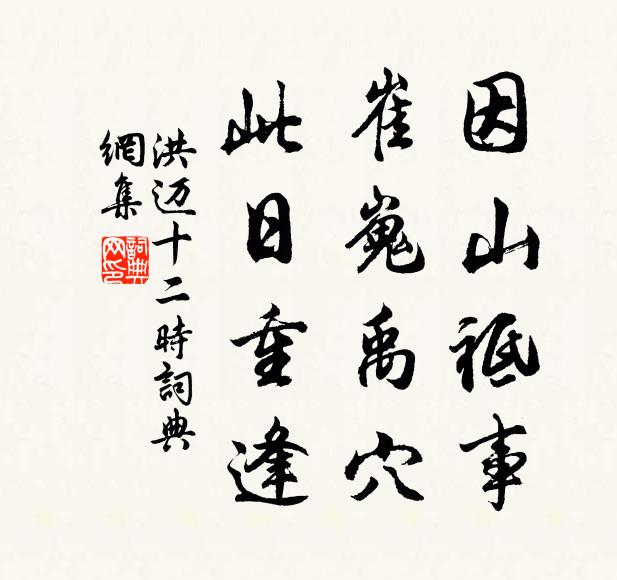 因山祗事
崔嵬禹穴
此日重逢
洪迈十二時詞典
網集
詞典
网印